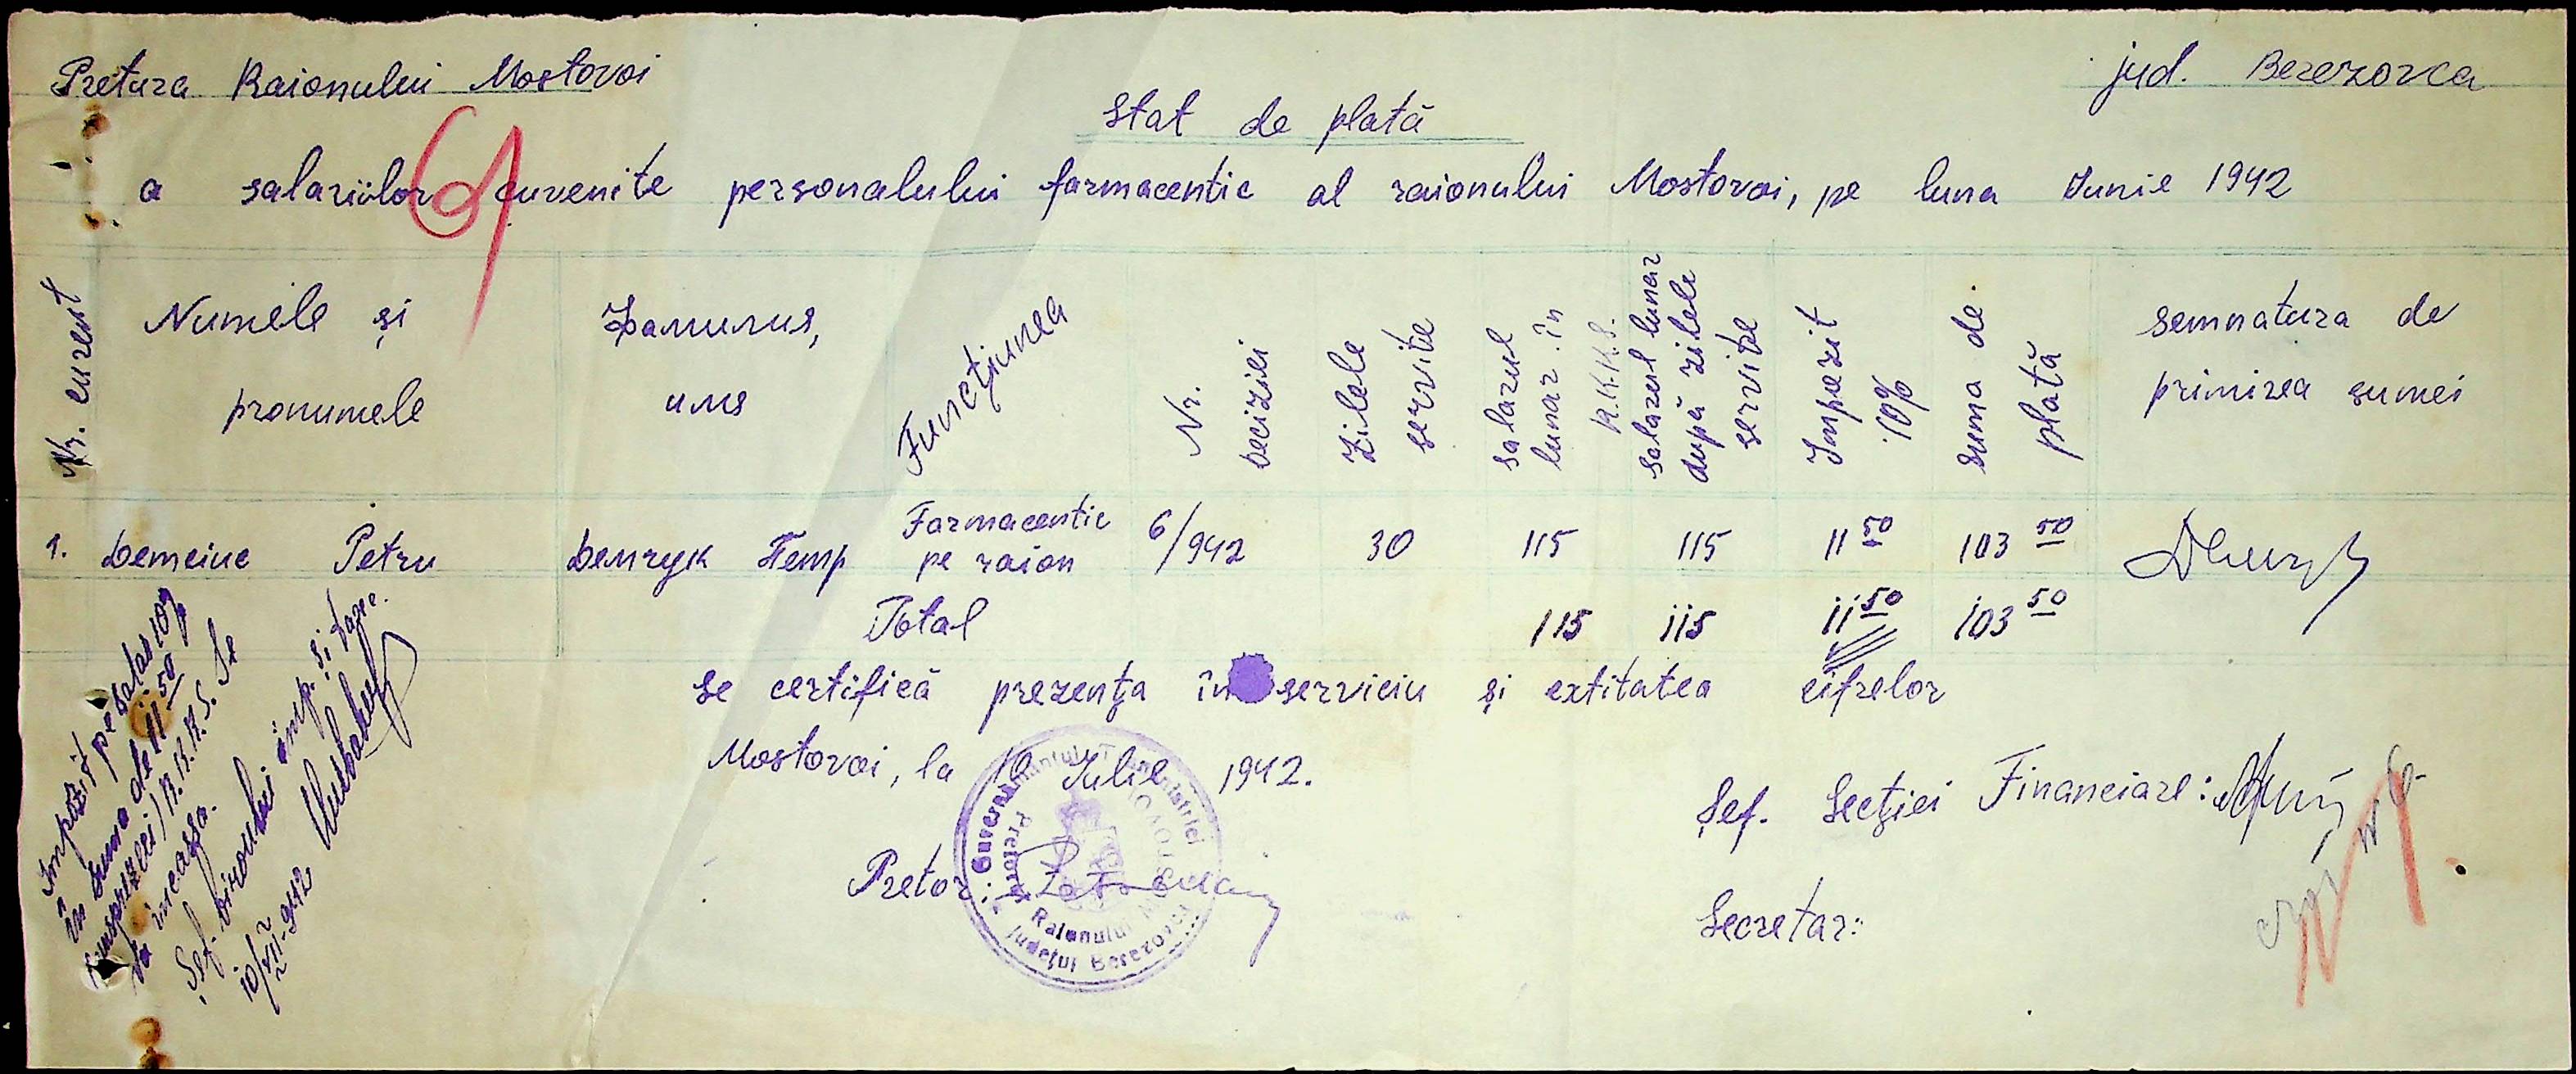 Pretura Raionului Mostovoi
jud. Berezovca
Stat de plată
a salariilor cuvenite personalului farmaceutic al raionului Mostovoi, pe luna Iunie 1942
61
Nr. curent
Numele și pronumele
Фамилия, имя
Funcțiunea
Nr. Deciziei
Zilele servite
Salarul lunar în R.K.K.S.
Salarul lunar după zilele servite
Impozit 10%
Suma de plată
Semnatura de primirea sumei
1. Demciuc Petru Демчук Петр Farmaceutic pe raion 6/942 30 115 115 11 50 103 50
Total 115 115 11 50 103 50
Se certifică prezența în serviciu și extitatea cifrelor
Mostovoi, la 10 Iulie 1942.
Pretor:
Guvernământul Transnistriei
Pretoria Raionului Mostovoi
Județul Berezovca
Șef. Secției Financiare:
Secretar:
Impozit pe salar 10%
în suma de 11 50
R.K.K.S. Se
va incassa.
Șef. biroului imp. și taxe.
10/VII-942